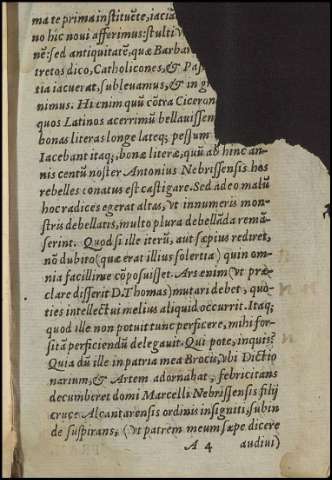 ma te prima instituẽte, iacia
no hic noui afferimus: stulti
nẽ: sed antiquitatẽ, quæ Barbar
tretos dico, Catholicones, & Pas
tia iacuerat, subleuamus, & in g
nimus. Hi enim quũ cõtra Ciceron
quos Latinos acerrimũ bellauissen
bonas literas longe lateq; pessum
Iacebant itaq; bonæ literæ, quũ ab hinc an-
nis centũ noster Antonius Nebrissensis hos
rebelles conatus est castigare. Sed adeo malũ
hoc radices egerat altas, vt innumeris mon-
stris debellatis, multo plura debellãda remã
serint. Quod si ille iterũ, aut sæpius rediret,
nõ dubito (quæ erat illius solertia) quin om-
nia facillime cõposuisset. Ars enim (vt præ-
clare disserit D. Thomas) mutari debet, quo-
ties intellectui melius aliquid occurrit. Itaq;
quod ille non potuit tunc perficere, mihi for-
sitã perficiendũ delegauit. Qui pote, inquis?
Quia dũ ille in patria mea Brocis, vbi Dictio
narium, & Artem adornabat, febricitans
decumberet domi Marcelli Nebrissensis filij
cruce Alcantarensis ordinis insigniti, subin
de suspirans, (vt patrem meum sæpe dicere
A 4 audiui)